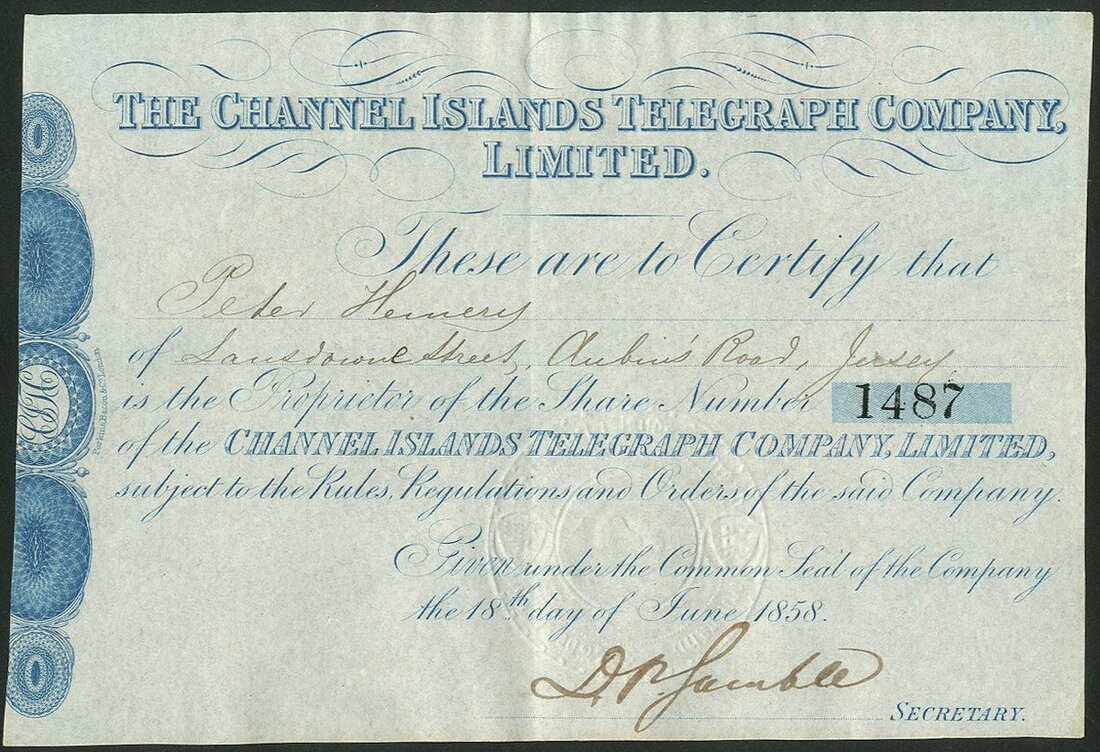 THE CHANNEL ISLANDS TELEGRAPH COMPANY,
LIMITED.
These are to Certify that
Peter Hemery
of Lansdowne Street, Aubin's Road, Jersey
is the Proprietor of the Share Number 1487
of the CHANNEL ISLANDS TELEGRAPH COMPANY, LIMITED,
subject to the Rules, Regulations and Orders of the said Company.
Given under the Common Seal of the Company
the 18th day of June 1858.
D. P. Gamble
SECRETARY.
Perkins, Bacon & Co. London.